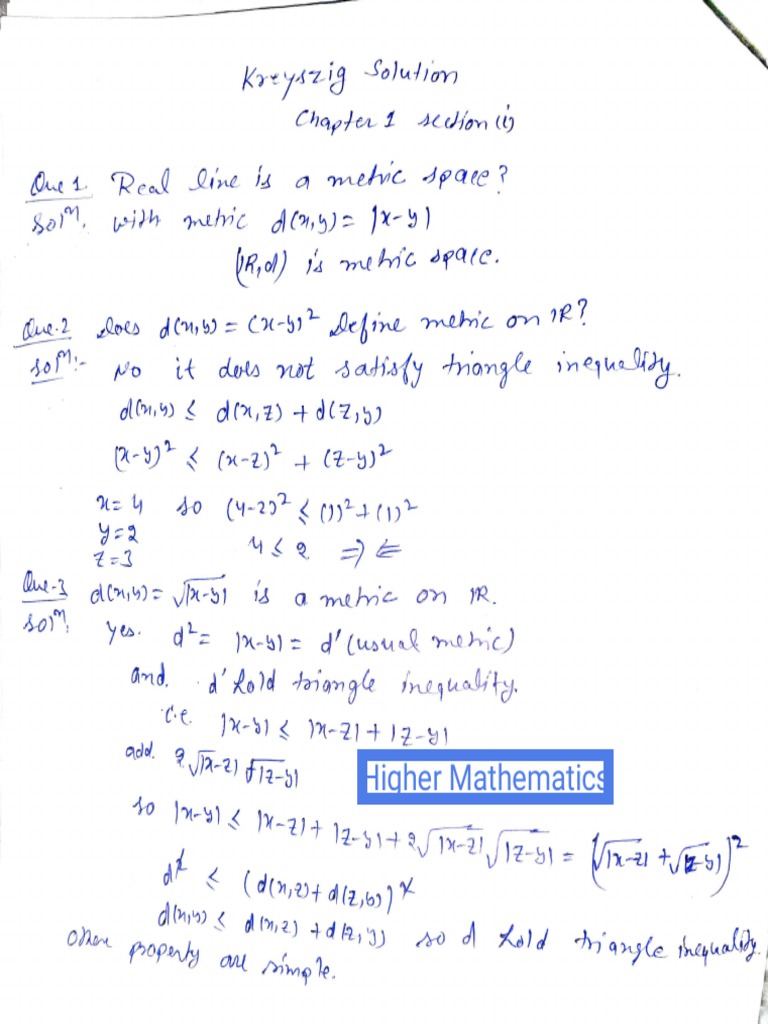 Kreyszig Solution
Chapter 1 section (i)
Que 1. Real line is a metric space?
Solⁿ. with metric d(x,y) = |x-y|
(IR,d) is metric space.
Que.2 Does d(x,y) = (x-y)² Define metric on IR?
Solⁿ:- No it does not satisfy triangle inequality.
d(x,y) ≤ d(x,z) + d(z,y)
(x-y)² ≤ (x-z)² + (z-y)²
x=4 so (4-2)² ≤ (1)² + (1)²
y=2
z=3 4 ≤ 2 ⇒⇐
Que-3 d(x,y) = √|x-y| is a metric on IR.
Solⁿ. Yes. d² = |x-y| = d' (usual metric)
and. d' hold triangle inequality.
i.e. |x-y| ≤ |x-z| + |z-y|
add. 2√|x-z| √|z-y|
Higher Mathematics
so |x-y| ≤ |x-z| + |z-y| + 2√|x-z| √|z-y| = (√|x-z| + √|z-y|)²
d² ≤ (d(x,z) + d(z,y))²
d(x,y) ≤ d(x,z) + d(z,y) so d hold triangle inequality.
other property are simple.